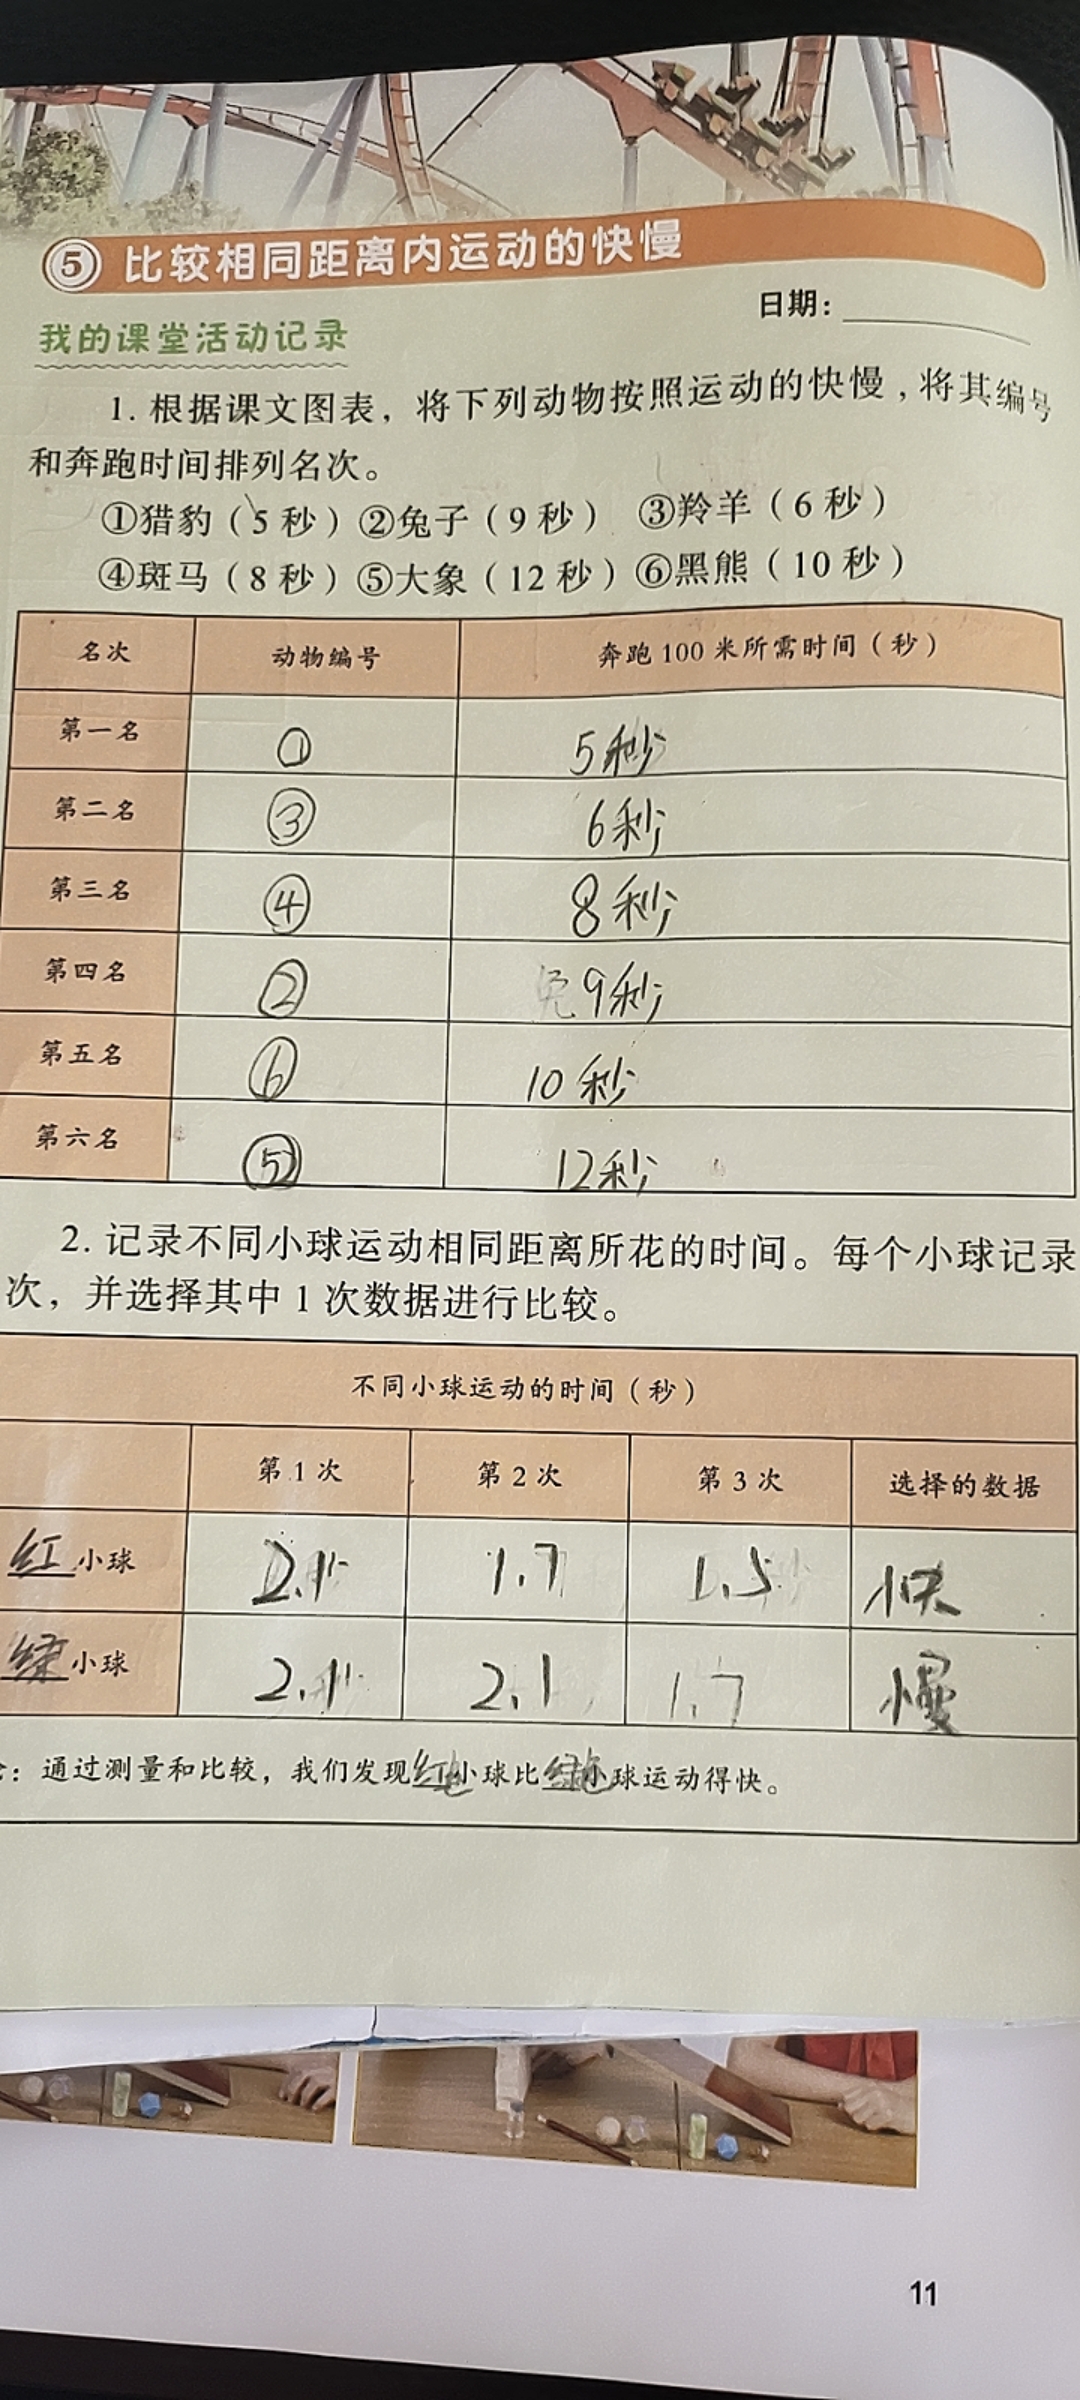 ⑤ 比较相同距离内运动的快慢
日期：
我的课堂活动记录
1. 根据课文图表，将下列动物按照运动的快慢，将其编号
和奔跑时间排列名次。
①猎豹（5 秒）②兔子（9 秒） ③羚羊（6 秒）
④斑马（8 秒）⑤大象（12 秒）⑥黑熊（10 秒）
名次 动物编号 奔跑 100 米所需时间（秒）
第一名 ① 5秒
第二名 ③ 6秒
第三名 ④ 8秒
第四名 ② 9秒
第五名 ⑥ 10秒
第六名 ⑤ 12秒
2. 记录不同小球运动相同距离所花的时间。每个小球记录
次，并选择其中 1 次数据进行比较。
不同小球运动的时间（秒）
第 1 次 第 2 次 第 3 次 选择的数据
红小球 2.1 1.7 1.5 快
绿小球 2.1 2.1 1.7 慢
：通过测量和比较，我们发现红小球比绿小球运动得快。
11